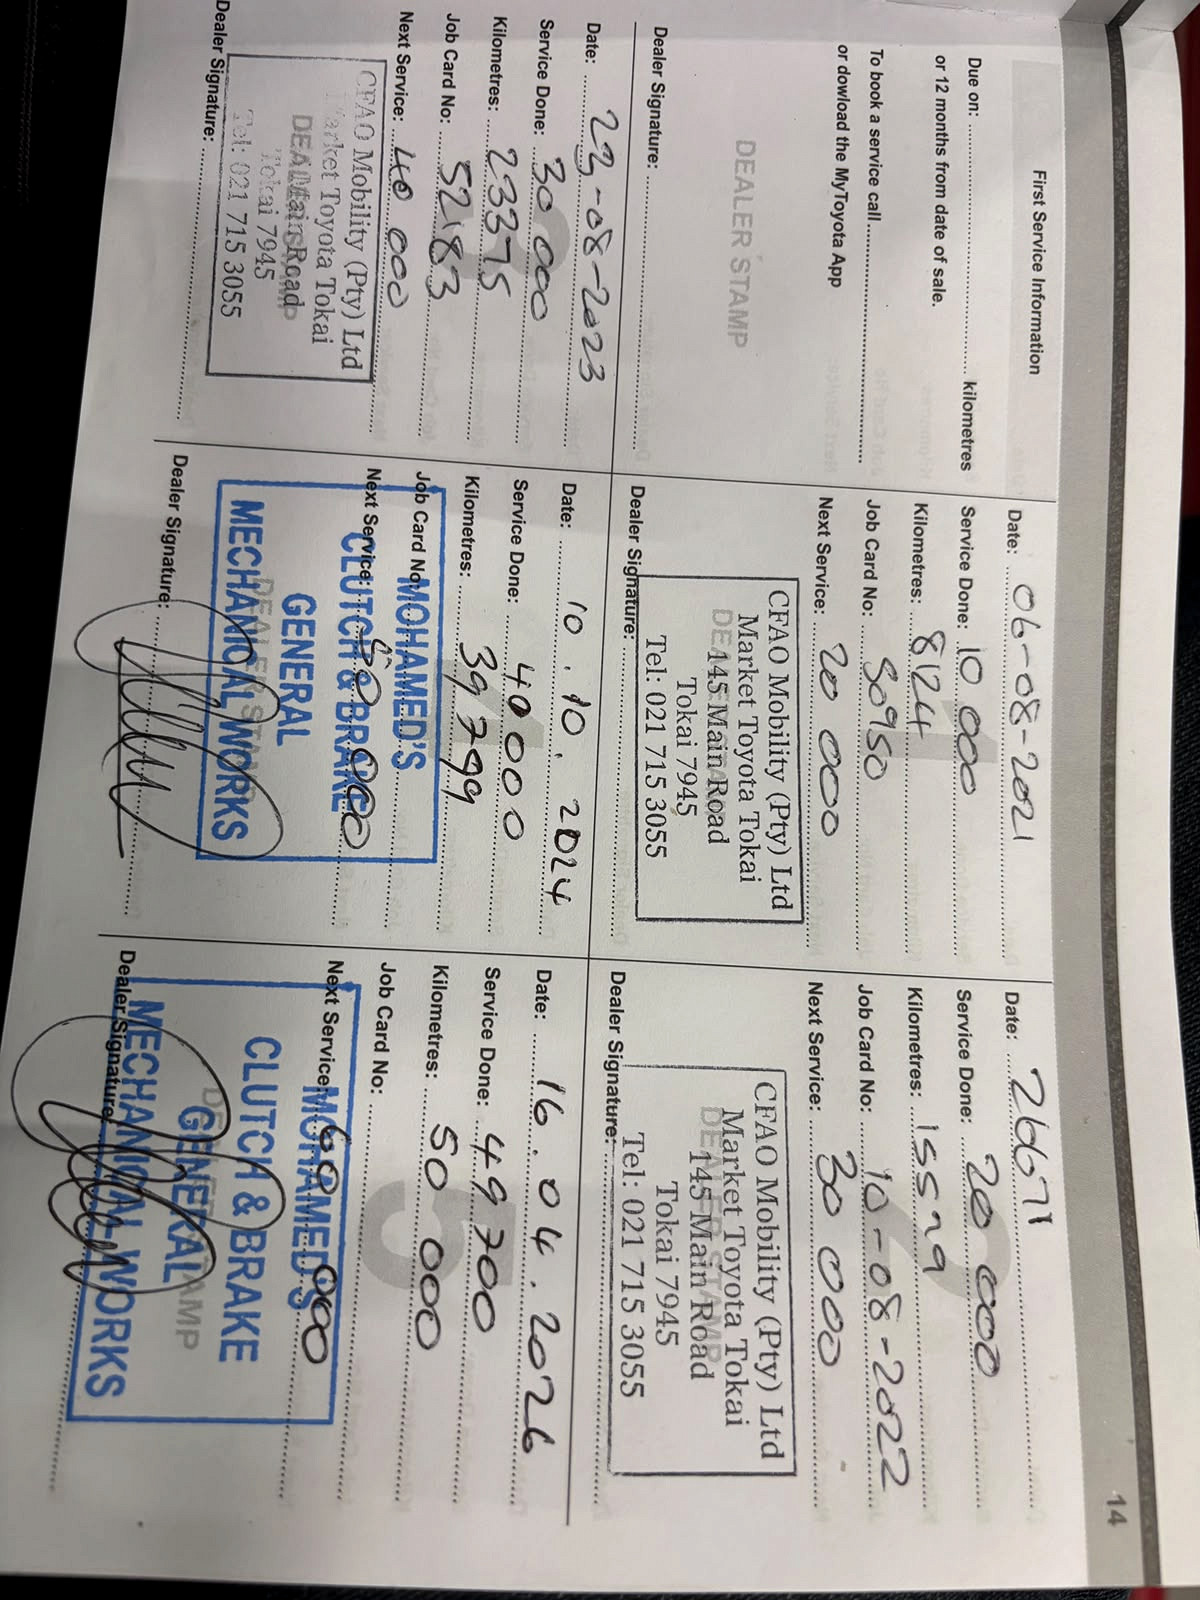 14
First Service Information
Due on: kilometres
or 12 months from date of sale.
To book a service call
or dowload the MyToyota App
DEALER STAMP
Dealer Signature:
Date: 06-08-2021
Service Done: 10 000
Kilometres: 8124
Job Card No: 80950
Next Service: 20 000
CFAO Mobility (Pty) Ltd
Market Toyota Tokai
145 Main Road
Tokai 7945
Tel: 021 715 3055
Dealer Signature:
Date:
Service Done: 20 000
Kilometres:
Job Card No: 10-08-2022
Next Service: 30 000
CFAO Mobility (Pty) Ltd
Market Toyota Tokai
145 Main Road
Tokai 7945
Tel: 021 715 3055
Dealer Signature:
Date: 22-08-2023
Service Done: 30 000
Kilometres: 23375
Job Card No: 52183
Next Service: 40 000
CFAO Mobility (Pty) Ltd
Market Toyota Tokai
Main Road
Tokai 7945
Tel: 021 715 3055
Dealer Signature:
Date: 10.10.2024
Service Done: 40000
Kilometres: 39799
Job Card No:
Next Service: 50 000
MOHAMED'S
CLUTCH & BRAKE
GENERAL
MECHANICAL WORKS
DEALER STAMP
Dealer Signature:
5
Date: 16.04.2026
Service Done: 49700
Kilometres: 50 000
Job Card No:
Next Service: 60 000
MOHAMED'S
CLUTCH & BRAKE
GENERAL
MECHANICAL WORKS
Dealer Signature: